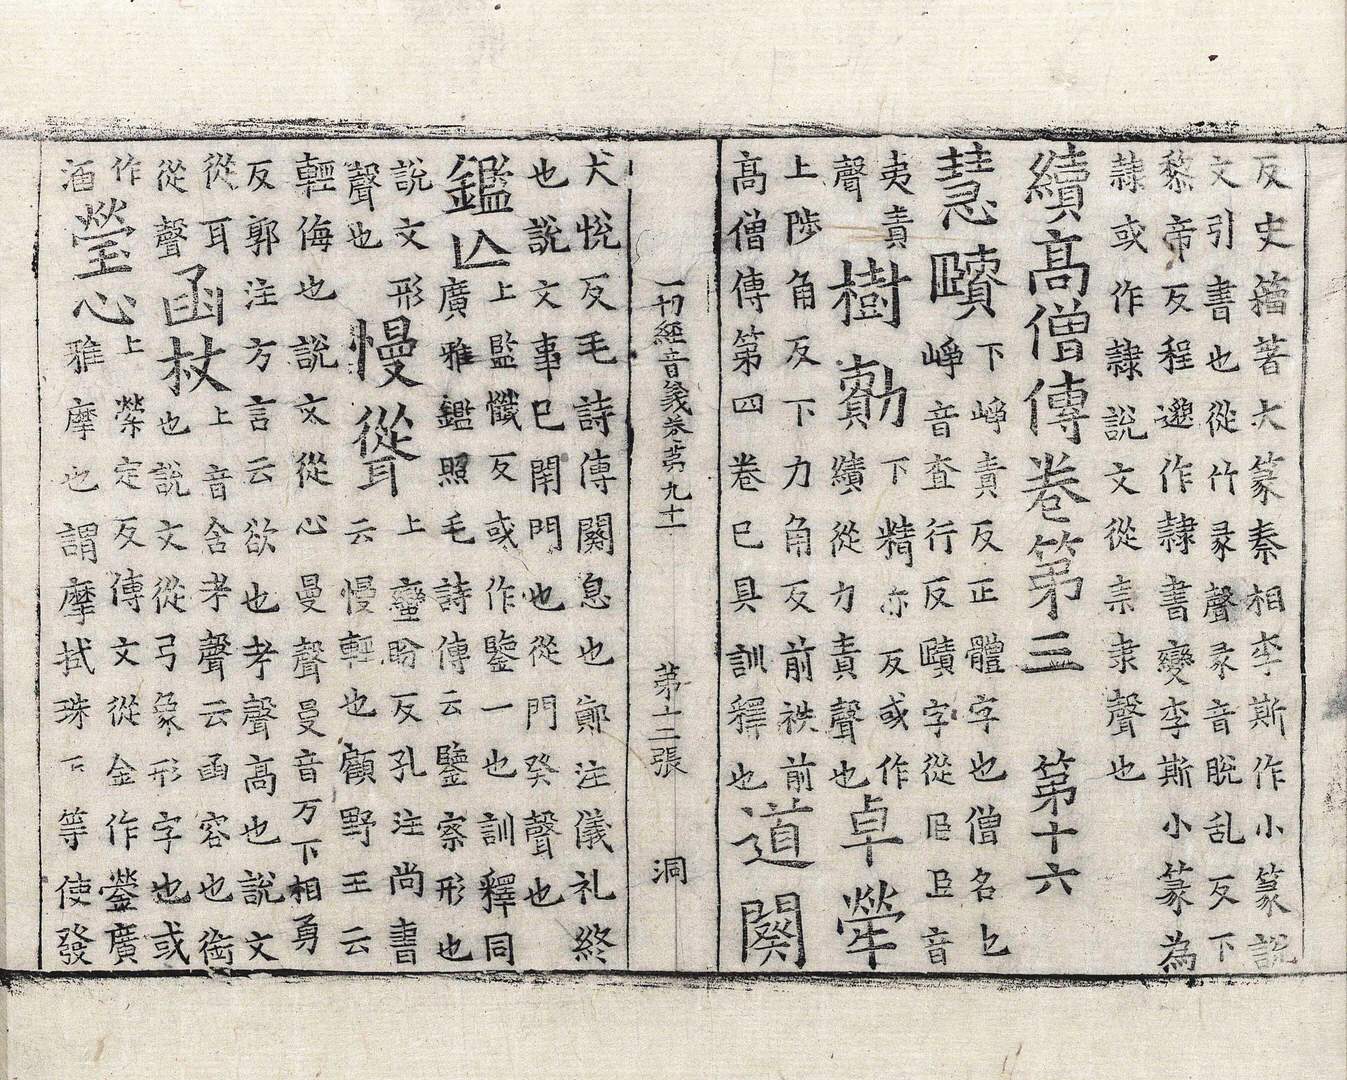 反史籒著大篆秦相李斯作小篆說
文引書也從竹彖聲彖音脫乱反下
黎帝反程邈作隷書變李斯小篆為
隷或作隷說文從柰隶聲也
續高僧傳卷第三　第十六
慧賾下崢責反正體字也僧名也
崢音查行反賾字從𦣞𦣞音
夷責
聲樹勣下精亦反或作
勣績從力責聲也卓犖
上陟角反下力角反前袟前
高僧傳第四卷已具訓釋也道闋
一切經音義卷第九十　第十二張　洞
犬悅反毛詩傳闋息也鄭注儀礼終
也說文事已閉門也從門癸聲也
鑑亾上監懺反或作鑒一也訓釋同
廣雅鑑照毛詩傳云鑒察形也
說文形慢聳上蠻盼反孔注尚書
聲也云慢輕也顧野王云
輕侮也說文從心曼聲曼音万下相勇
反郭注方言云欲也孝聲高也說文
從耳函杖上音含孝聲云函容也銜
從聲也說文從弓象形字也或
作瑩心上縈定反傳文從金作鎣廣
涵雅摩也謂摩拭珠下等使發